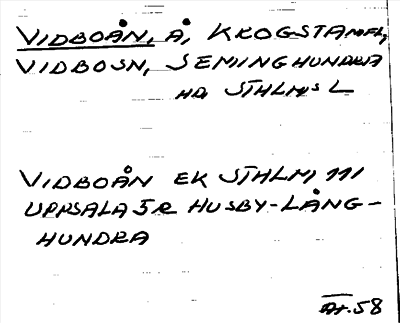 VIDBOÅN, Å, KROGSTA
VIDBOSN, SEMINGHUNDRA
HD STHLMS L
VIDBOÅN EK STHLM 111
UPPSALA 5R HUSBY-LÅNG-
HUNDRA
58